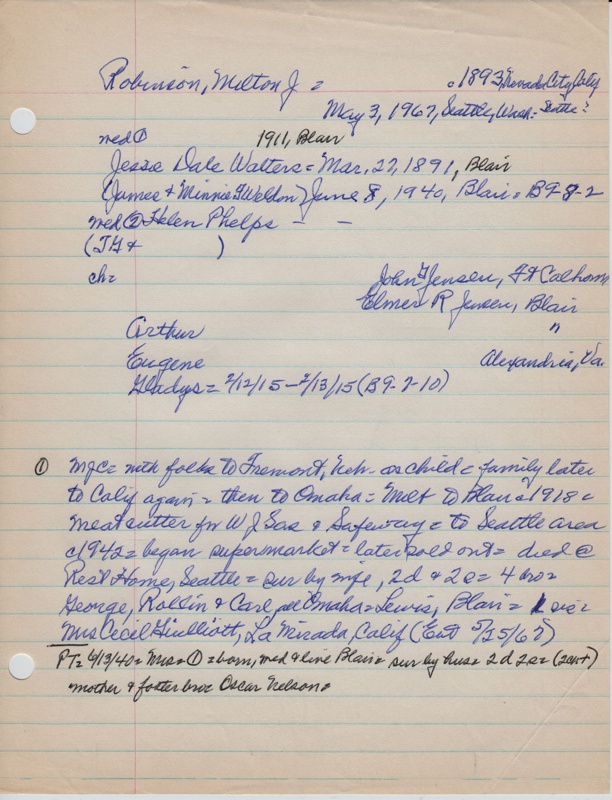 Robinson, Milton J = c1893, Nevada City, Calif
May 3, 1967, Seattle, Wash = Seattle?
med ① 1911, Blair
Jessie Dale Walters = Mar. 27, 1891, Blair
(James & Minnie F Weldon) June 8, 1940, Blair = B9-8-2
med ② Helen Phelps - -
(J G & )
ch =
John F Jensen, Ft Calhoun
Elmer R Jensen, Blair
Arthur "
Eugene Alexandria, Va.
Gladys = 2/12/15 - 2/13/15 (B9-7-10)
① MJC = with folks to Fremont, Neb. as child = family later
to Calif again = then to Omaha = Milt to Blair c1918 =
meatcutter for W J Sas & Safeway = to Seattle area
c1942 = began supermarket = later sold out = died @
Rest Home, Seattle = sur by wife, 2d & 2s = 4 bro =
George, Rollin & Carl, all Omaha = Lewis, Blair = 1 sis =
Mrs Cecil Giulliott, La Mirada, Calif (Ent 5/25/67)
PT = 6/13/40 = Mrs = ① = born, med & live Blair = sur by hus = 2d 2s =
mother & foster bro = Oscar Nelson =